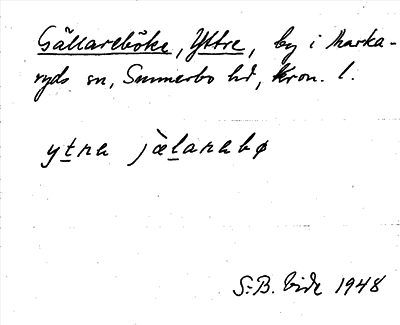 Gällareböke, Yttre, by i Marka-
ryds sn, Sunnerbo hd, Kron. l.
ytra jæ̀larabø
S:B. Vide 1948